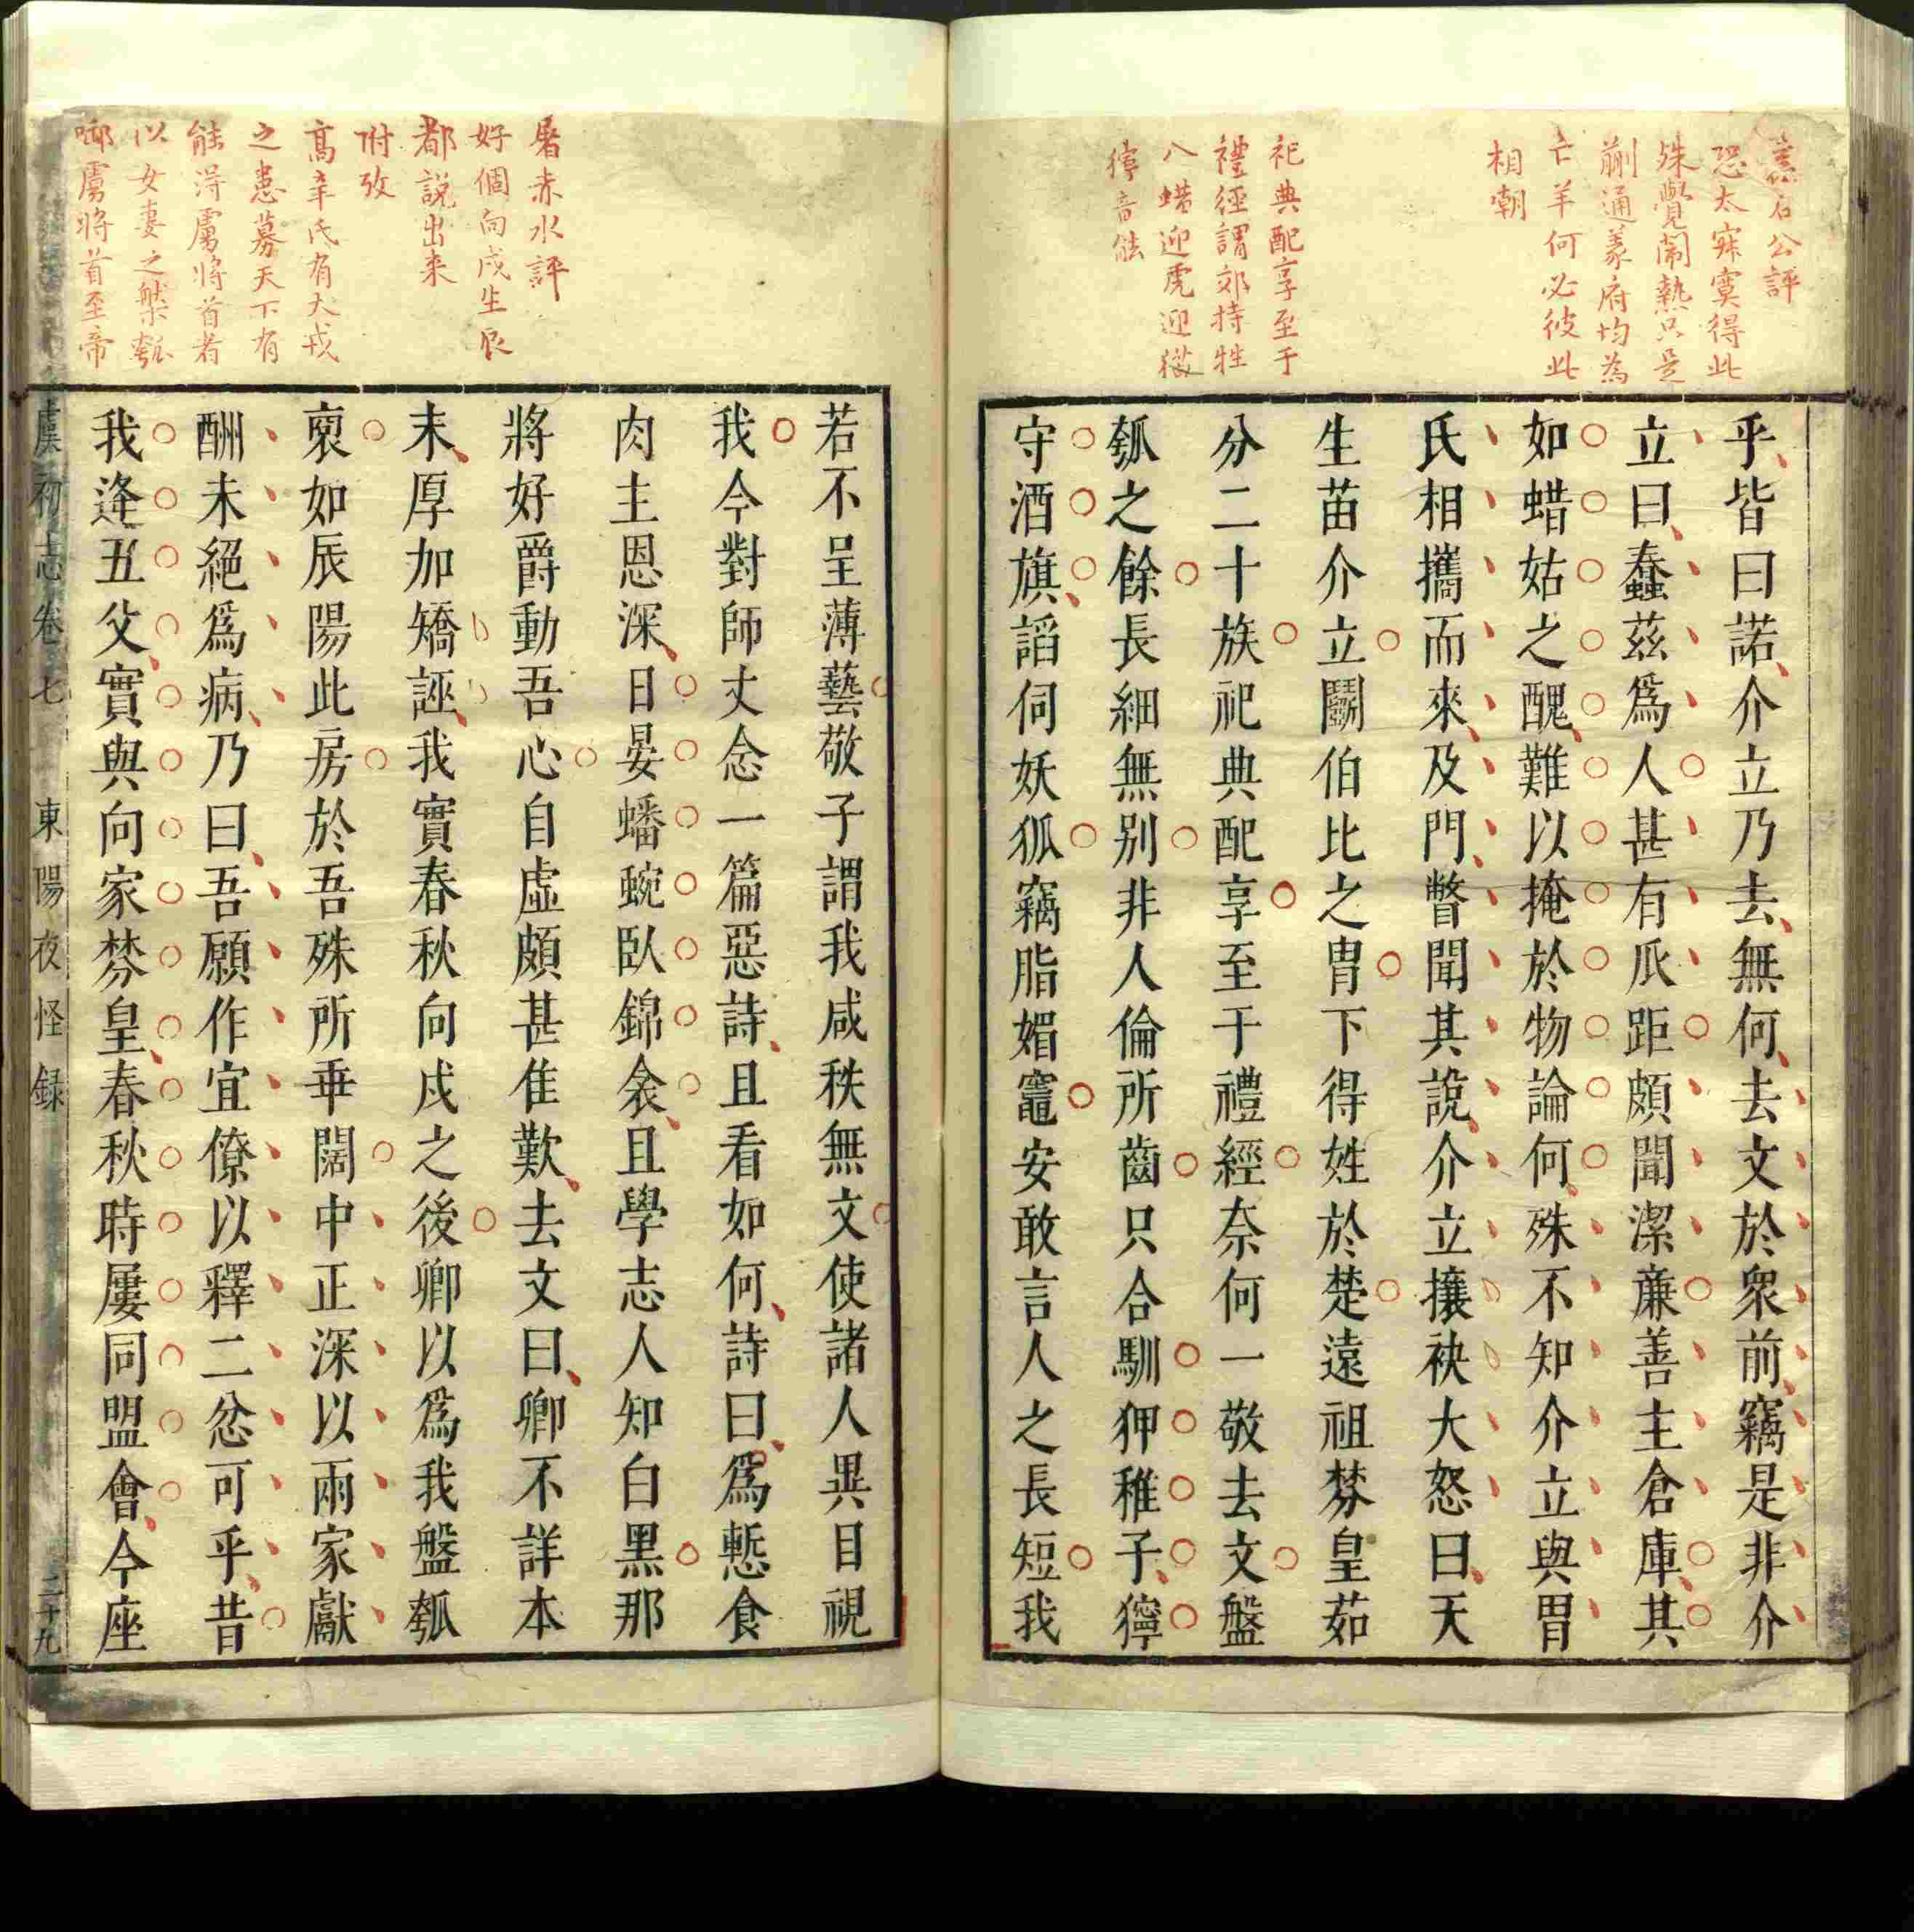 袁石公評
恐太寂寞得此
殊覺鬧熱只是
蒯通蒙府均為
亡羊何必彼此
相嘲
祀典配享至于
禮經謂郊特牲
八蜡迎虎迎貓
獰音能
乎皆曰諾介立乃去無何去文於衆前竊是非介
立曰蠢茲爲人甚有爪距頗聞潔亷善主倉庫其
如蜡姑之醜難以掩於物論何殊不知介立與胃
氏相攜而來及門瞥聞其説介立攘袂大怒曰天
生苗介立鬭伯比之冑下得姓於楚遠祖棼皇茹
分二十族祀典配享至于禮經奈何一敬去文盤
瓠之餘長細無别非人倫所齒只合馴狎稚子獰
守酒旗謟伺妖狐竊脂媚竈安敢言人之長短我
屠赤水評
好個向戌生辰
都説出来
附攷
高辛氏有犬戎
之患募天下有
能得
將首者
以女妻之槃瓠
將首至帝
若不呈薄藝敬子謂我咸秩無文使諸人異日視
我今對師丈念一篇惡詩且看如何詩曰爲慙食
肉主恩深日晏蟠蜿臥錦衾且學志人知白黑那
將好爵動吾心自虛頗甚佳歎去文曰卿不詳本
末厚加矯誣我實春秋向戌之後卿以爲我盤瓠
裔如辰陽此房於吾殊所乖闊中正深以兩家獻
酬未絕爲病乃曰吾願作宜僚以釋二忿可乎昔
我逄丑父實與向家棼皇春秋時屢同盟會今座
虞初志卷七 東陽夜怪録 二十九